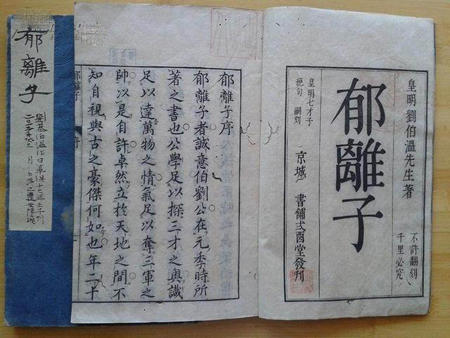 皇明劉伯溫先生著
郁離子
不許翻刻
千里必究
皇明七才子
絶句 嗣刻
京城 書鋪弍酉堂發刊
郁離子序
郁離子者誠意伯劉公在元季時所
著之書也公學足以探三才之奧識
足以達萬物之情氣足以奪三軍之
帥以是自許卓然立於天地之間不
知自視與古之豪傑何如也年二十
郁離子
郁離子